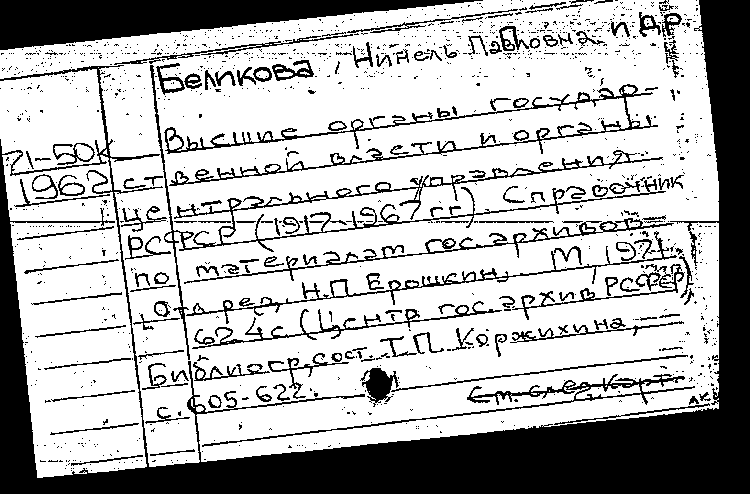 Беликова, Нинель Павловна и др.
Высшие органы государ-
71-50К
1962 ственной власти и органы
центрального управления
РСФСР (1917-1967 гг). Справочник
по материалам гос. архивов
Отв. ред. Н.П Ерошкин. М, 1971.
624с (Центр гос. архив РСФСР)
Библиогр., сост. Т.П. Коржихина,
с. 605-622.
См. след карт.